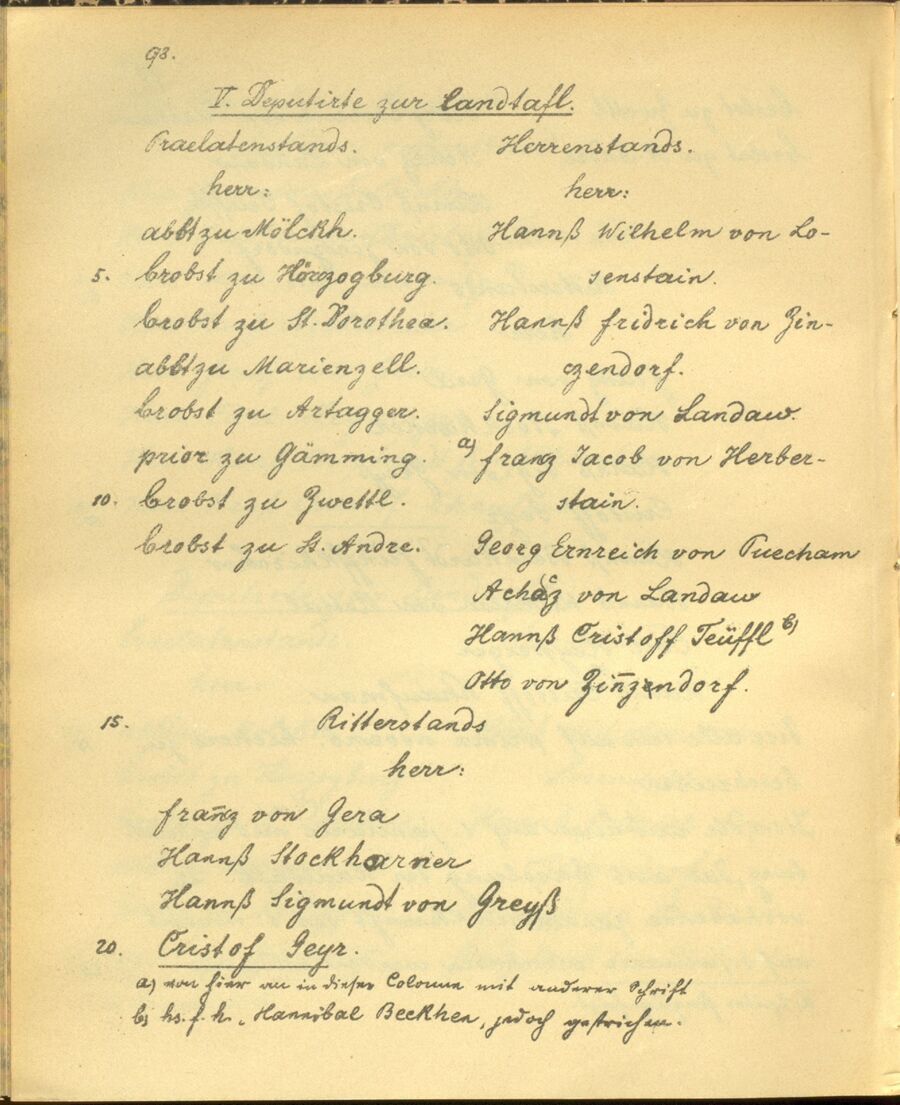 98.
V. Deputirte zur Landtafl.
Praelatenstands.
herr:
abbt zu Mölckh.
5. brobst zu Hörzogburg.
brobst zu St. Dorothea.
abbt zu Marienzell.
brobst zu Artagger.
prior zu Gämming.
10. brobst zu Zwettl.
brobst zu St. Andre.
Herrenstands.
herr:
Hannß Wilhelm von Lo-
senstain.
Hannß fridrich von Zin-
czendorf.
Sigmundt von Landaw.
a) franz Jacob von Herber-
stain.
Georg Ernreich von Puecham
Achacz von Landaw
Hannß Cristoff Teüffl b)
Otto von Zinnzendorf.
15. Ritterstands
herr:
frannz von Gera
Hannß Stockharner
Hannß Sigmundt von Greyß
20. Cristof Geyr.
a) von hier an in dieser Colonne mit anderer Schrift
b) hs. f. h. „Hannibal Beckhen, jedoch gestrichen.